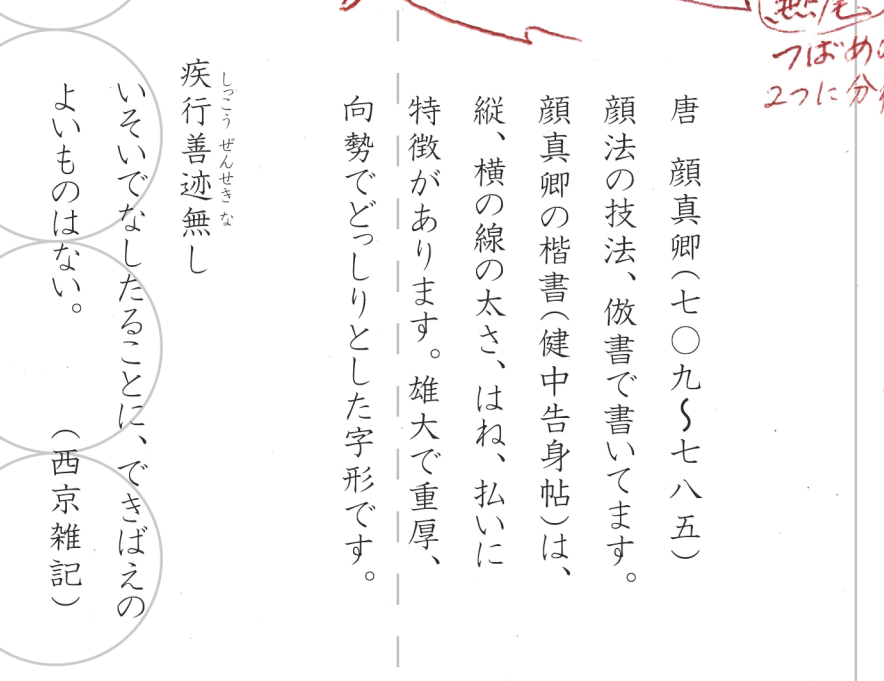 燕尾
つばめの
2つに分
唐　顔真卿（七〇九～七八五）
顔法の技法、倣書で書いてます。
顔真卿の楷書（健中告身帖）は、
縦、横の線の太さ、はね、払いに
特徴があります。雄大で重厚、
向勢でどっしりとした字形です。
疾行善迹無し
しっこう ぜんせき な
いそいでなしたることに、できばえの
よいものはない。　（西京雑記）